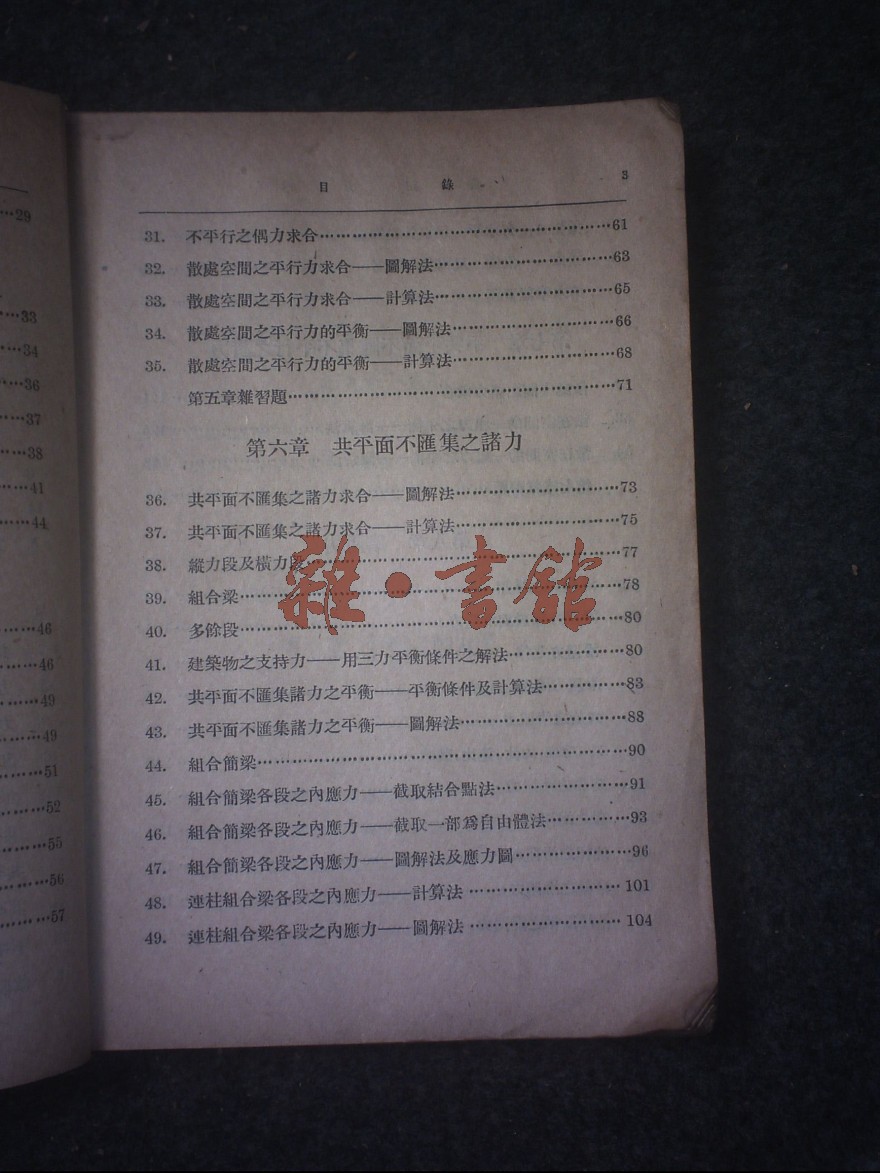 29
33
34
36
37
38
41
44
46
46
49
49
51
52
55
56
57
目 錄 3
31. 不平行之偶力求合……61
32. 散處空間之平行力求合——圖解法……63
33. 散處空間之平行力求合——計算法……65
34. 散處空間之平行力的平衡——圖解法……66
35. 散處空間之平行力的平衡——計算法……68
第五章雜習題……71
第六章 共平面不匯集之諸力
36. 共平面不匯集之諸力求合——圖解法……73
37. 共平面不匯集之諸力求合——計算法……75
38. 縱力段及橫力段……77
39. 組合梁……78
40. 多餘段……80
41. 建築物之支持力——用三力平衡條件之解法……80
42. 共平面不匯集諸力之平衡——平衡條件及計算法……83
43. 共平面不匯集諸力之平衡——圖解法……88
44. 組合簡梁……90
45. 組合簡梁各段之內應力——截取結合點法……91
46. 組合簡梁各段之內應力——截取一部爲自由體法……93
47. 組合簡梁各段之內應力——圖解法及應力圖……96
48. 連柱組合梁各段之內應力——計算法……101
49. 連柱組合梁各段之內應力——圖解法……104
雜·書館